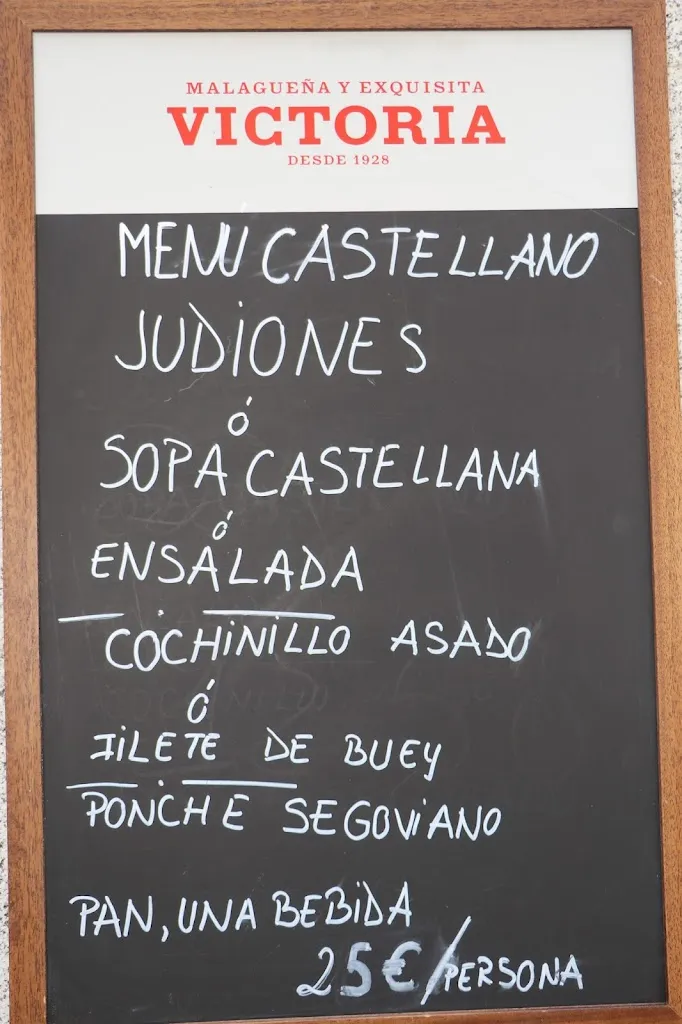 MALAGUEÑA Y EXQUISITA
VICTORIA
DESDE 1928
MENÚ CASTELLANO
JUDIONES
Ó
SOPA CASTELLANA
Ó
ENSALADA
COCHINILLO ASADO
Ó
FILETE DE BUEY
PONCHE SEGOVIANO
PAN, UNA BEBIDA
25€/PERSONA